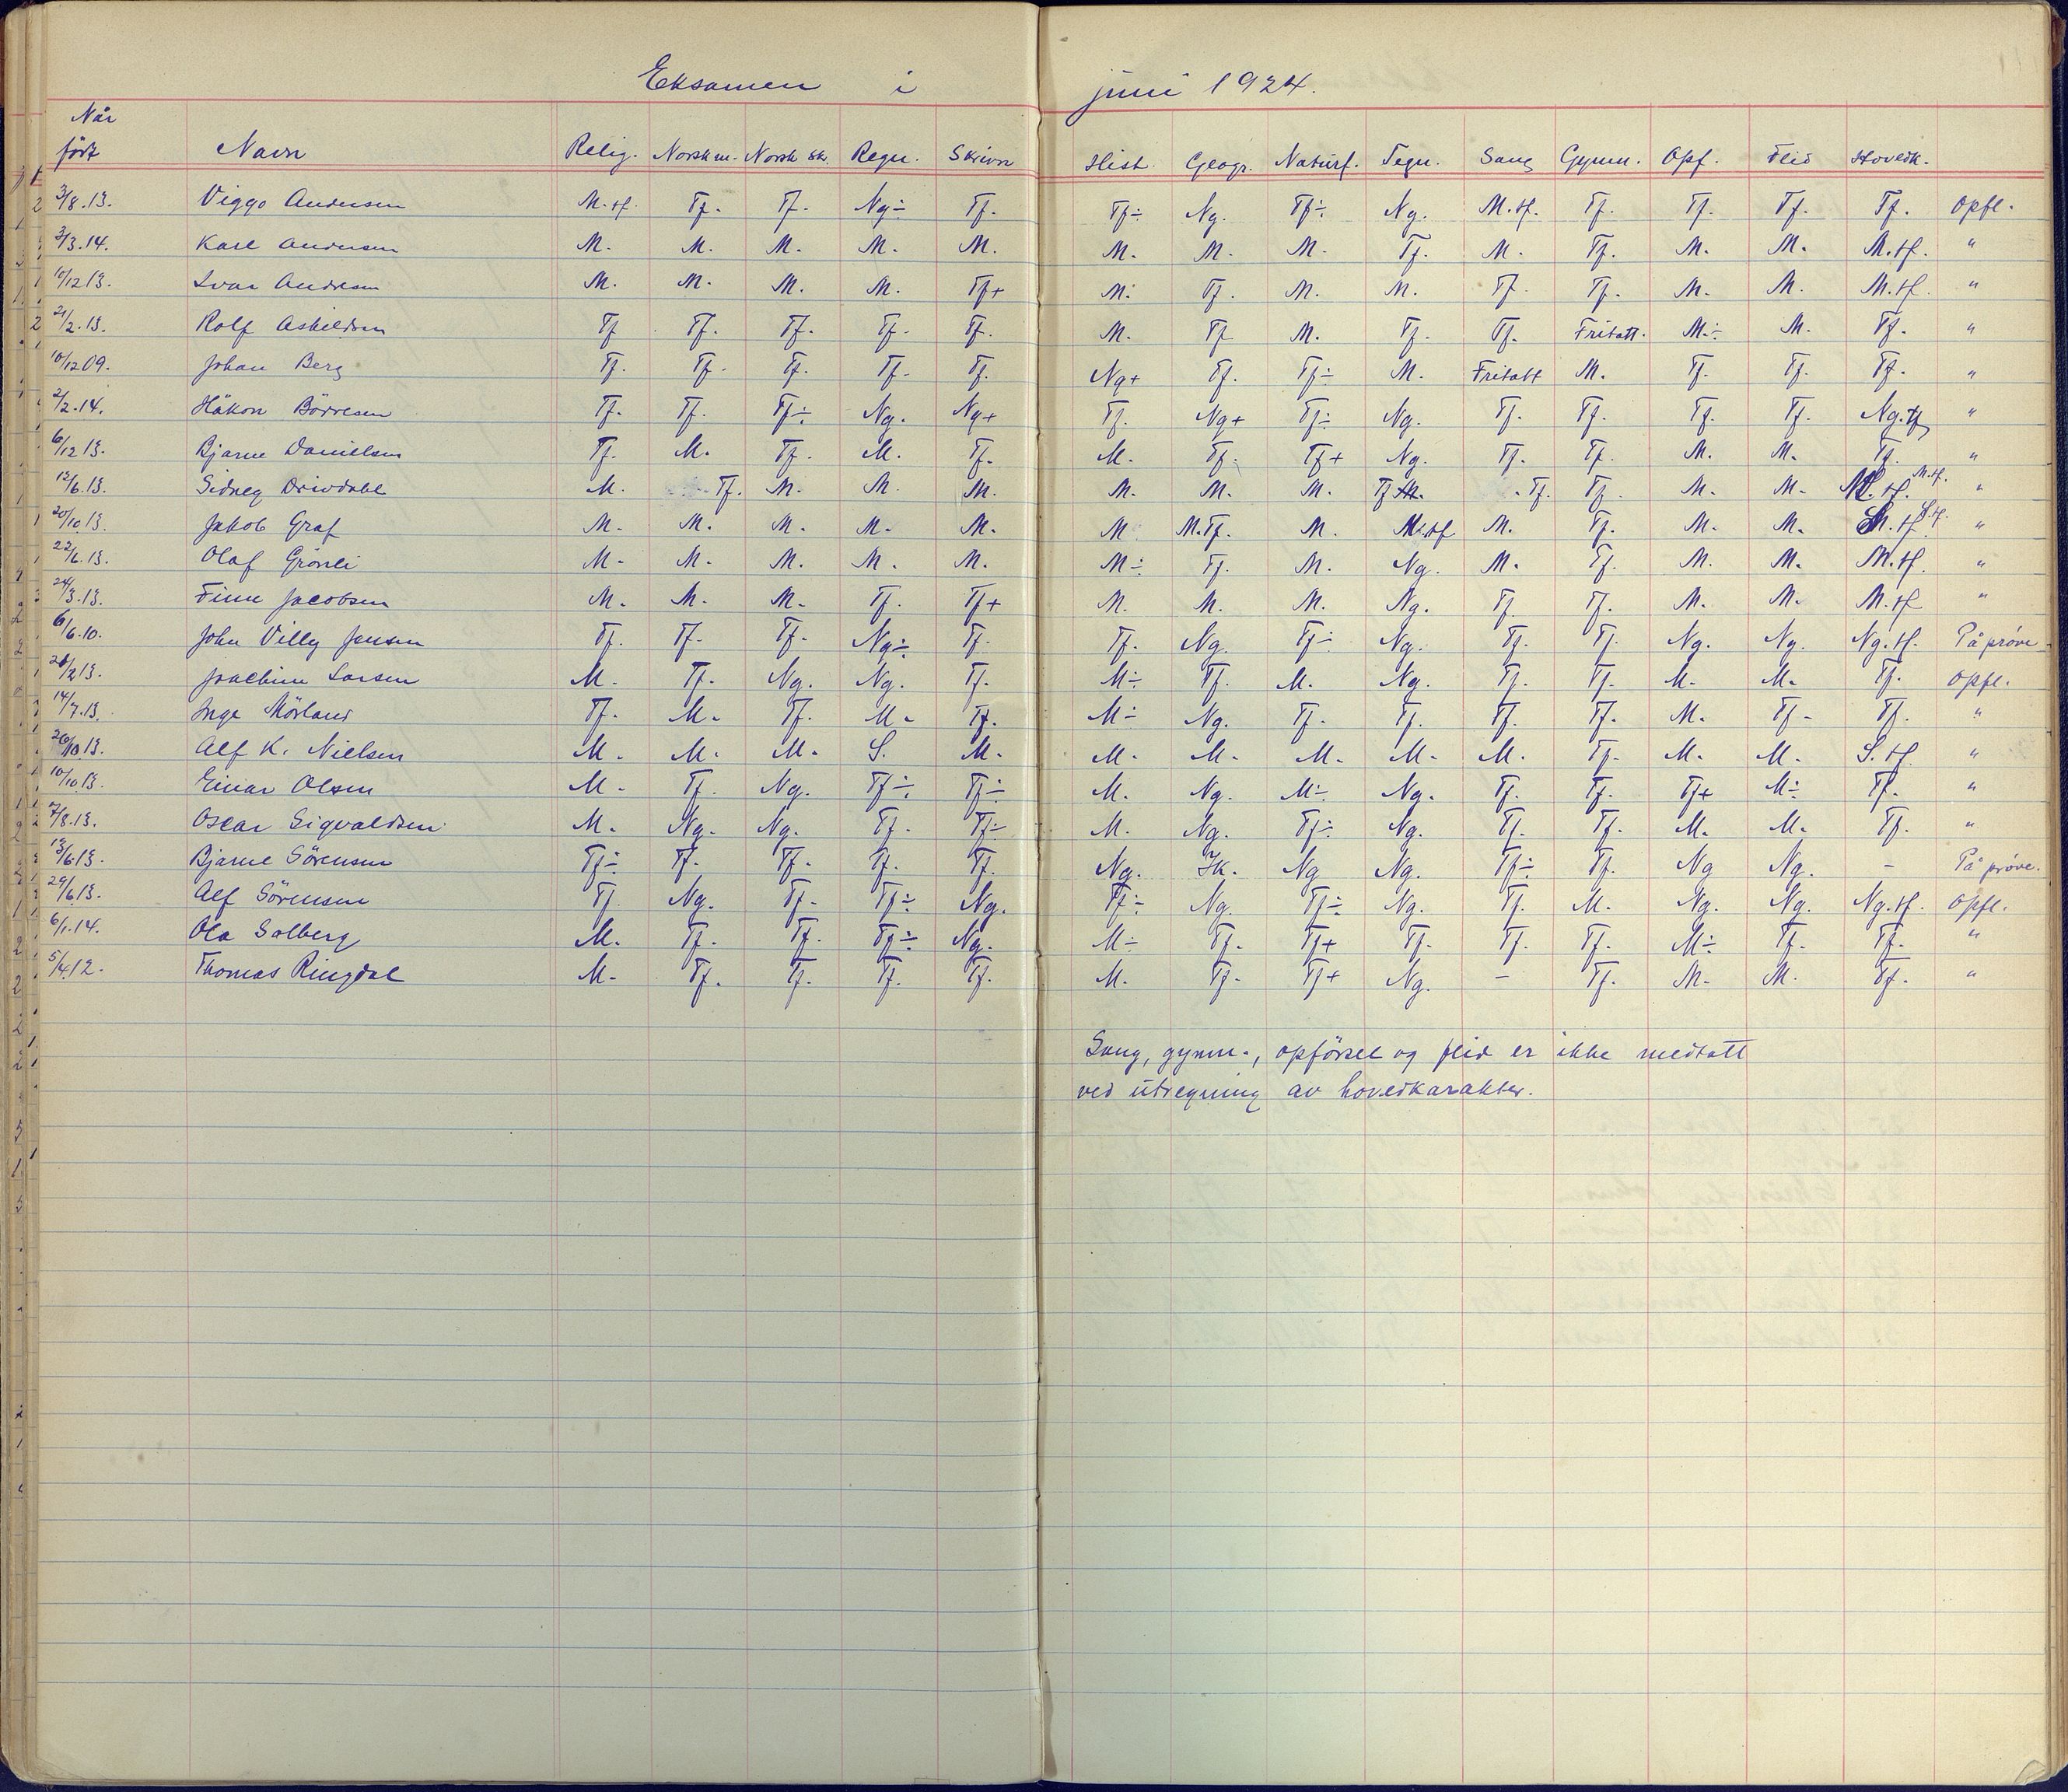 Eksamen i juni 1924.
Når
født Navn Relig. Norsk m. Norsk sk. Regn. Skrivn Hist. Geogr. Naturf. Tegn. Sang Gymn. Opf. Flid Hovedk.
3/8.13. Viggo Andersen M.tf. Tf. Tf. Ng÷ Tf. Tf÷ Ng. Tf÷ Ng. M.tf. Tf. Tf. Tf. Tf. Opfl.
3/3.14. Karl Andersen M. M. M. M. M. M. M. M. Tf. M. Tf. M. M. M.tf. "
10/12.13. Ivar Andresen M. M. M. M. Tf+ M. Tf. M. M. Tf. Tf. M. M. M.tf. "
21/2.13. Rolf Askildsen Tf Tf. Tf. Tf. Tf. M. Tf M. Tf. Tf. Fritatt. M÷ M. Tf. "
10/12.09. Johan Berg Tf. Tf. Tf. Tf. Tf. Ng+ Tf. Tf÷ M. Fritatt M. Tf. Tf. Tf. "
2/2.14. Håkon Børresen Tf. Tf. Tf÷ Ng. Ng+ Tf. Ng+ Tf÷ Ng. Tf. Tf. Tf. Tf. Ng.tf "
6/12.13. Bjarne Danielsen Tf. M. Tf. M. Tf. M. Tf. Tf+ Ng. Tf. Tf. M. M. Tf. "
12/6.13. Sidney Drivdahl M. Tf. M. M. M. M. M. M. Tf. Tf. Tf. M. M. M.tf. "
20/10.13. Jakob Graf M. M. M. M. M. M M.Tf. M. M.tf M. Tf. M. M. S.tf. "
22/6.13. Olaf Grönli M. M. M. M. M. M÷ Tf. M. Ng. M. Tf. M. M. M.tf. "
24/3.13. Finn Jacobsen M. M. M. Tf. Tf+ M. M. M. Ng. Tf Tf. M. M. M.tf "
6/6.10. John Villy Jensen Tf. Tf. Tf. Ng÷ Tf. Tf. Ng. Tf÷ Ng. Tf. Tf. Ng. Ng. Ng.tf. På prøve
28/2.13. Joachim Larsen M. Tf. Ng. Ng. Tf. M÷ Tf. M. Ng. Tf. Tf. M. M. Tf. Opfl.
14/7.13. Inge Mörland Tf. M. Tf. M. Tf. M÷ Ng. Tf. Tf. Tf. Tf. M. Tf. Tf. "
26/10.13. Alf K. Nielsen M. M. M. S. M. M. M. M. M. M. Tf. M. M. S.tf. "
10/10.13. Einar Olsen M. Tf. Ng. Tf÷ Tf÷ M. Ng. M÷ Ng. Tf. Tf. Tf+ M÷ Tf. "
7/8.13. Oscar Sigvaldsen M. Ng. Ng. Tf. Tf÷ M. Ng. Tf÷ Ng. Tf. Tf. M. M. Tf. "
13/6.13. Bjarne Sörensen Tf÷ Tf. Tf. Tf. Tf. Ng. Ik. Ng Ng. Tf÷ Tf. Ng Ng. – På prøve.
29/6.13. Alf Sörensen Tf Ng. Tf. Tf÷ Ng. Tf÷ Ng. Tf÷ Ng. Tf. M. Ng. Ng. Ng.tf. Opfl.
6/1.14. Ola Solberg M. Tf. Tf. Tf÷ Ng. M÷ Tf. Tf+ Tf. Tf. Tf. M÷ Tf. Tf. "
5/4.12. Thomas Ringdal M. Tf. Tf. Tf. Tf. M. Tf. Tf+ Ng. – Tf. M. M. Tf. "
Sang, gymn., opförsel og flid er ikke medtatt
ved utregning av hovedkarakter.